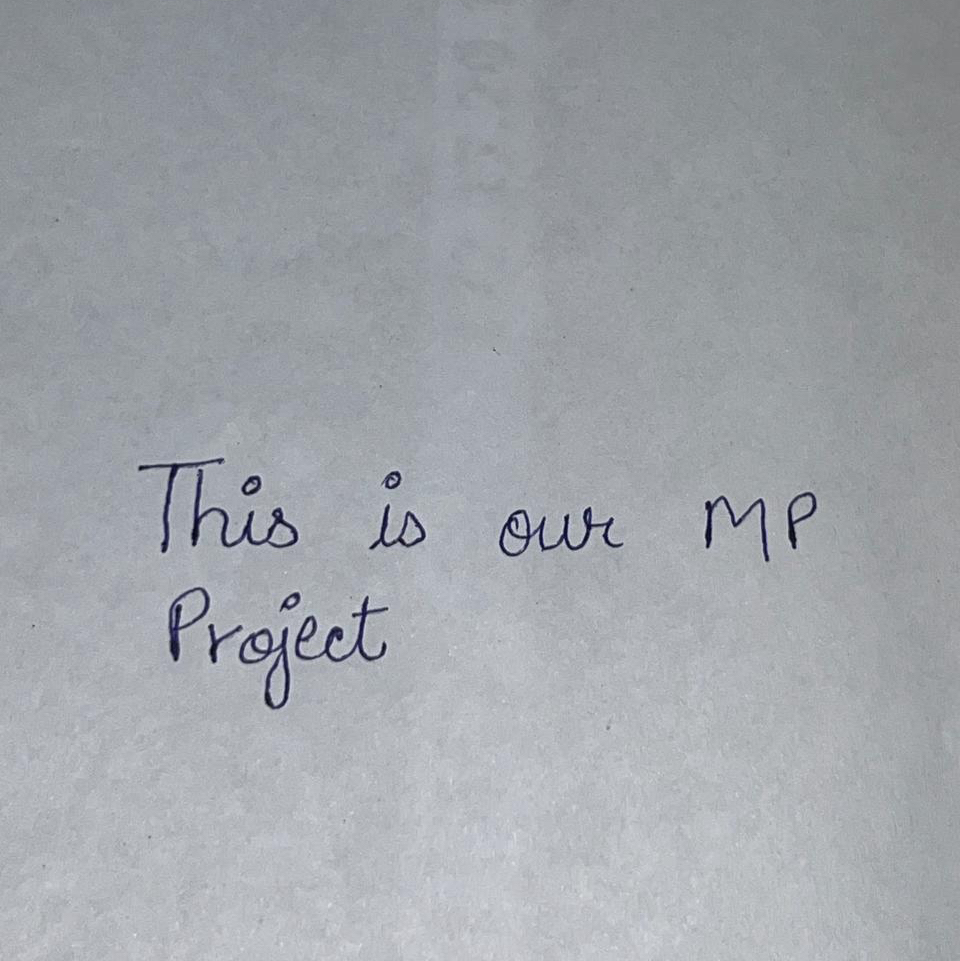 This is our MP
Project